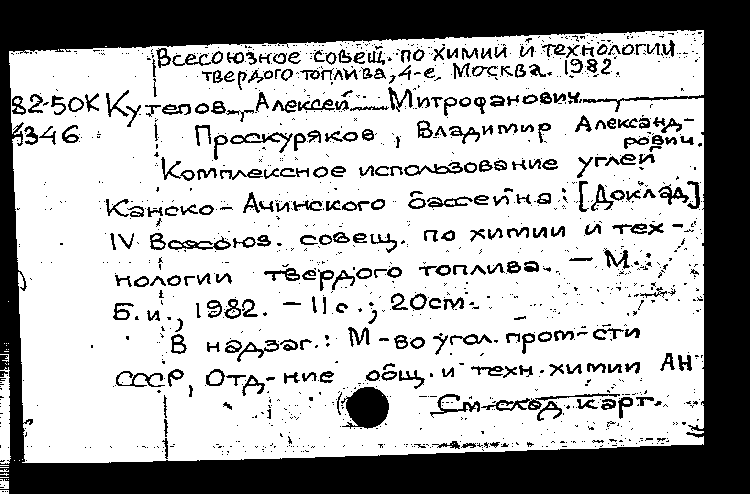 Всесоюзное совещ. по химии и технологии
твердого топлива, 4-е, Москва. 1982.
82-50К Кутепов, Алексей Митрофанович,
4346 Проскуряков, Владимир Александ-
рович.
Комплексное использование углей
Канско-Ачинского бассейна: [Доклад]
IV Всесоюз. совещ. по химии и тех-
нологии твердого топлива. - М.:
Б.и., 1982. - 11 с.; 20см.
В надзаг.: М-во угол. пром-сти
СССР, Отд-ние общ. и техн. химии АН
См. след. карт.